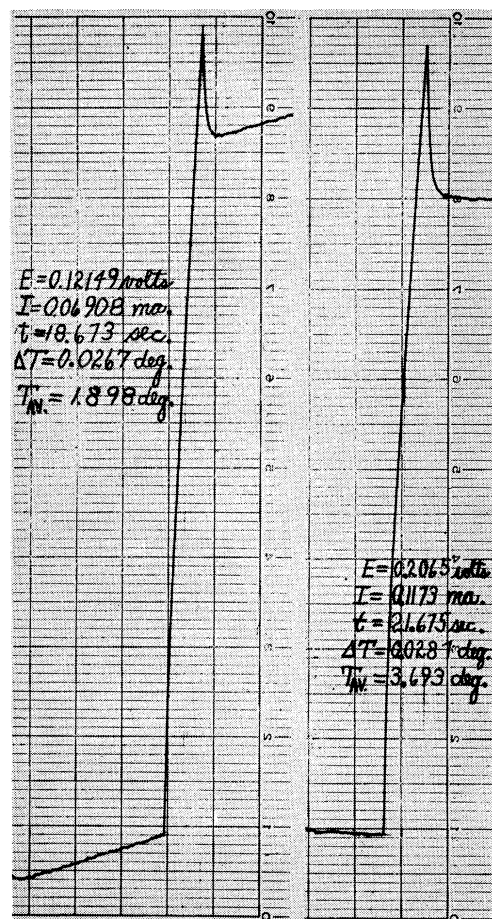 E=0.12149 volts
I=0.06908 ma.
t=18.673 sec.
ΔT=0.0267 deg.
T_AV. = 1.898 deg.
E=0.2065 volts
I=0.1173 ma.
t=21.675 sec.
ΔT=0.0287 deg.
T_AV. = 3.693 deg.